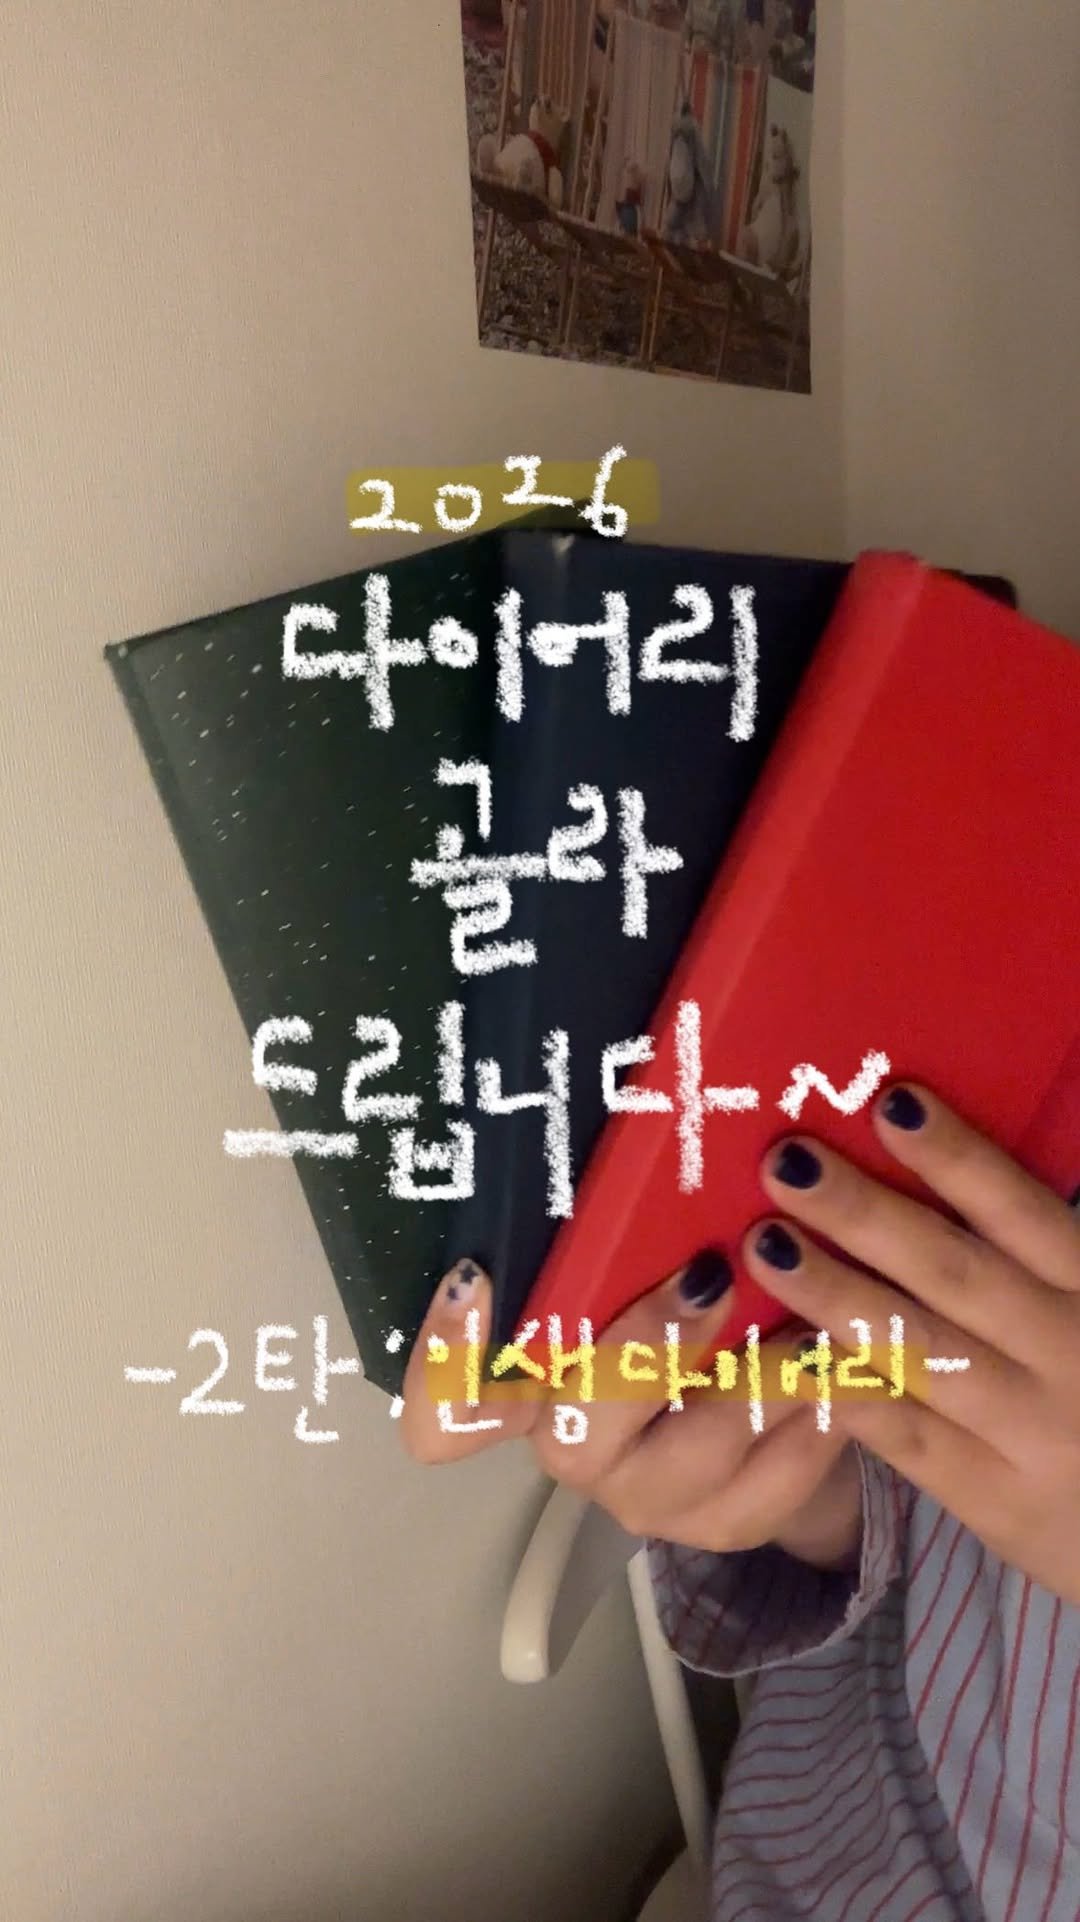 2026
다이어리
골라
드립니다~
-2탄:인생 다이어리-